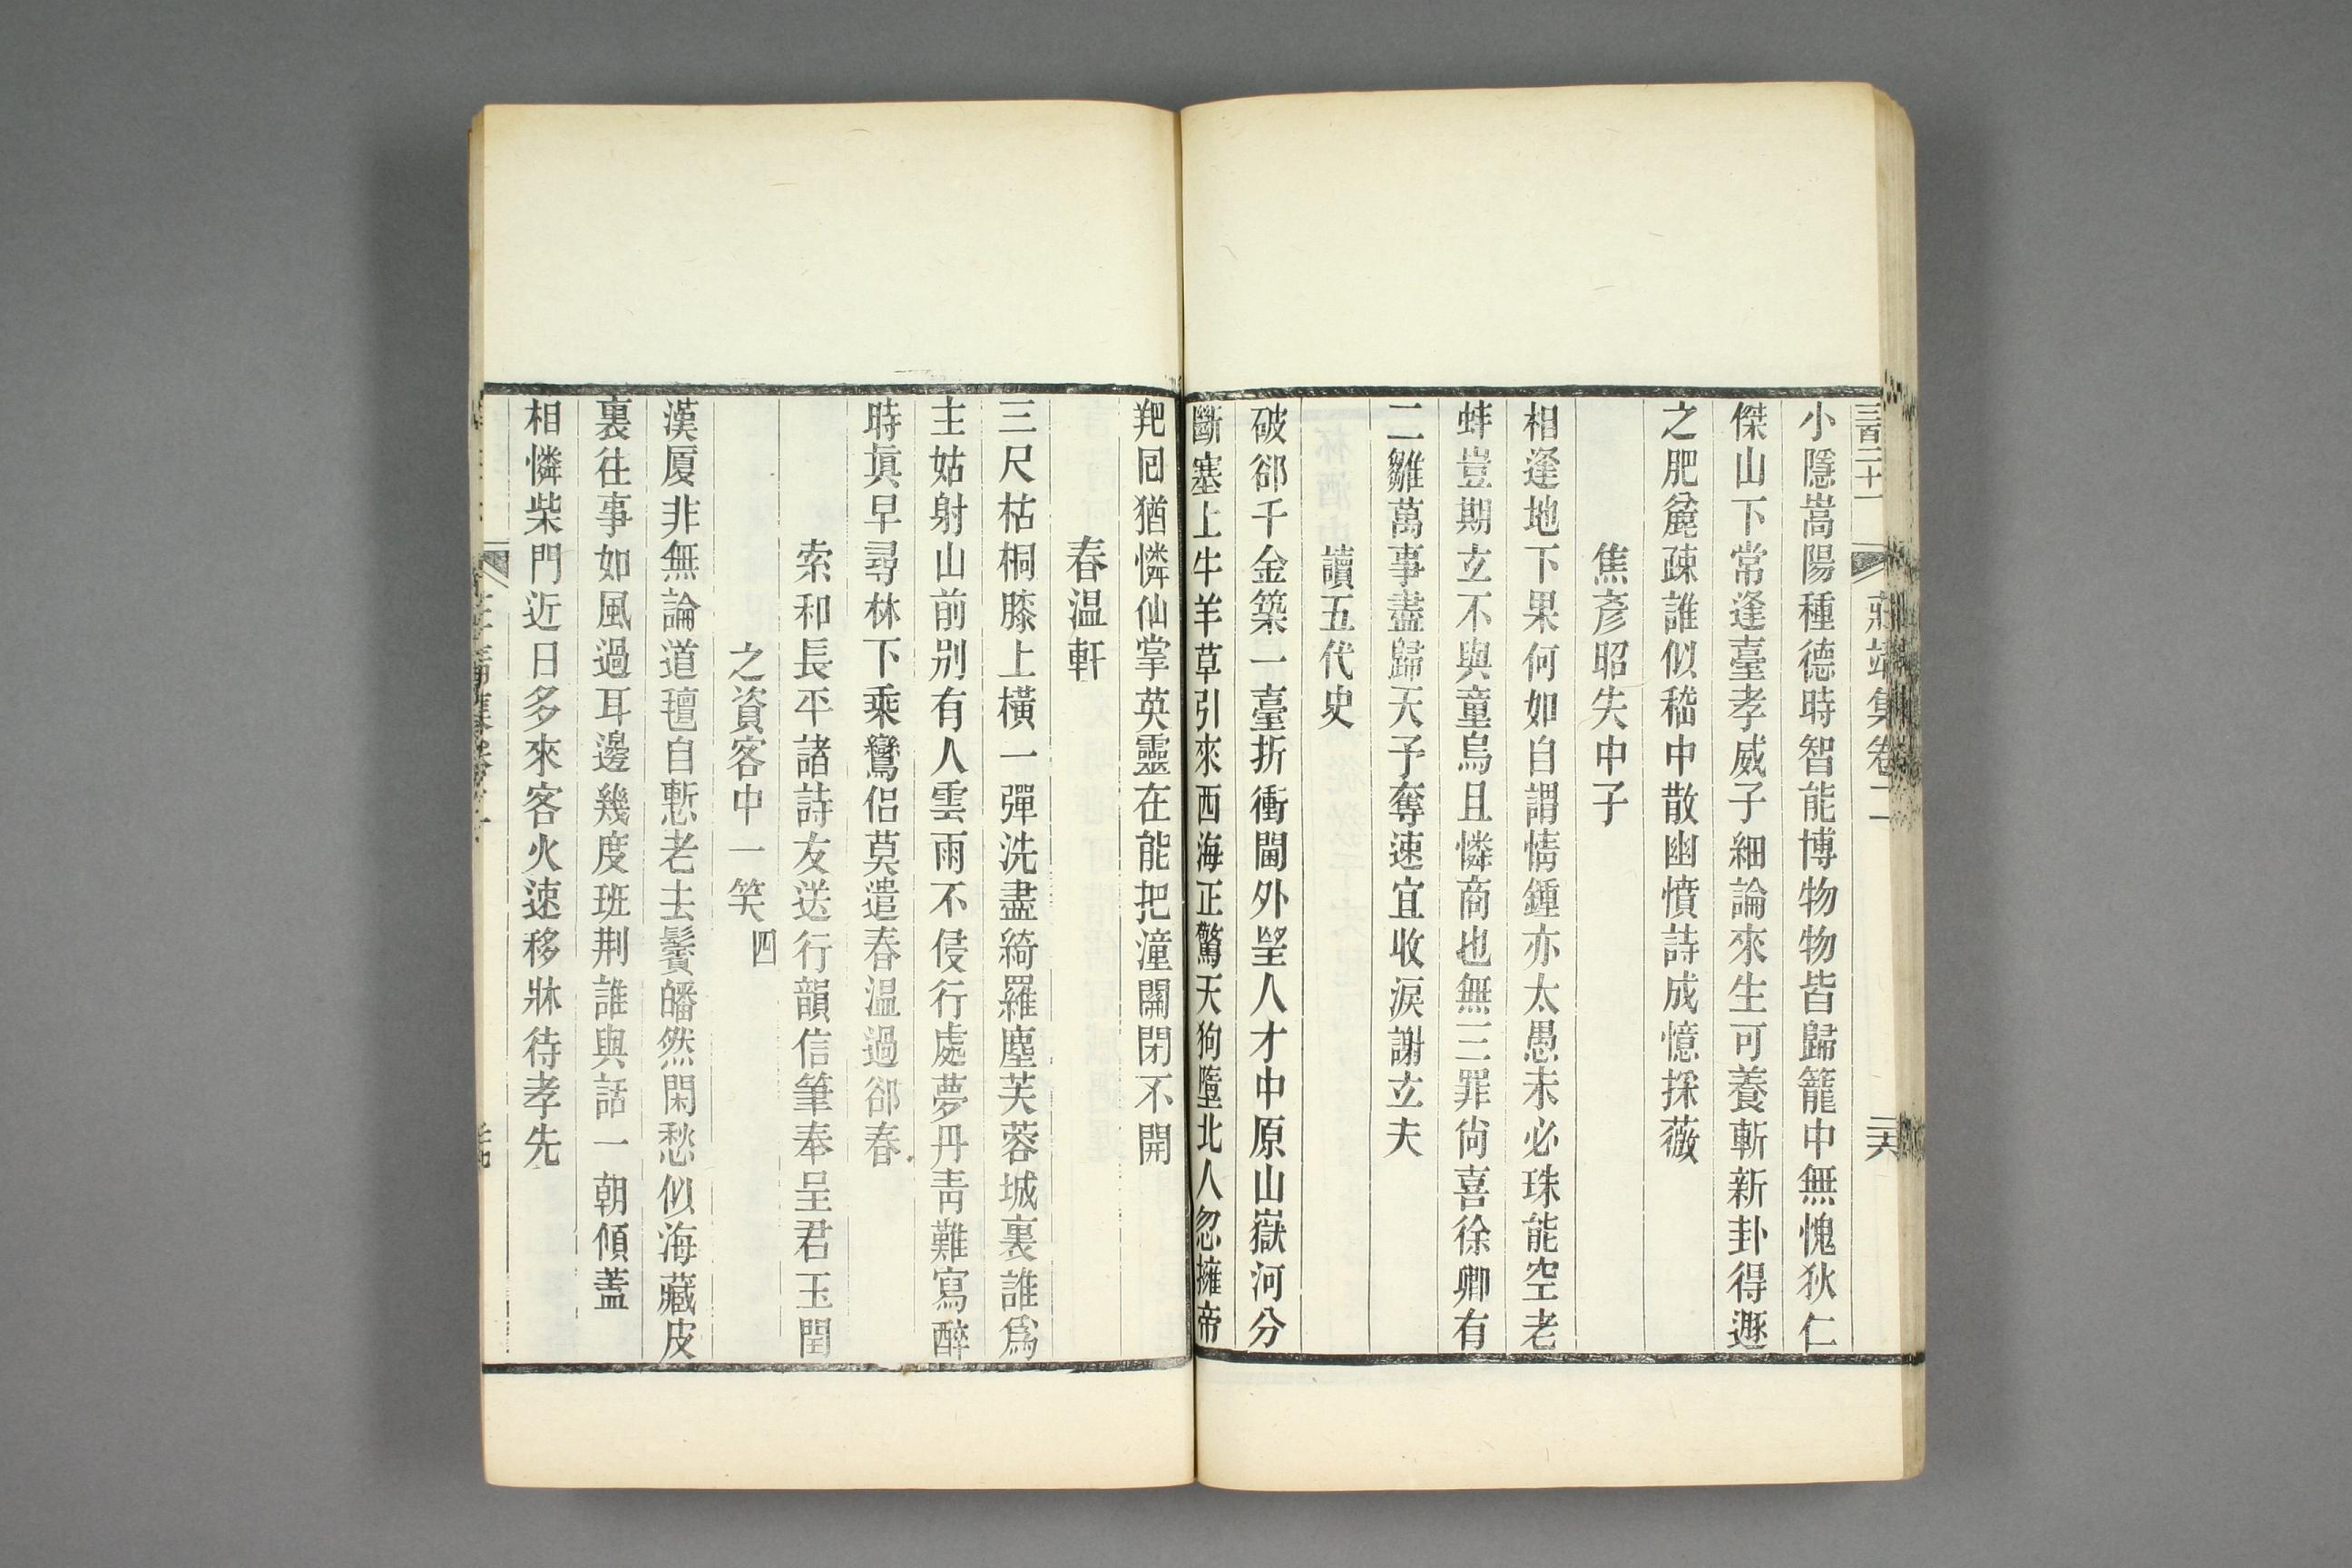 三百二十一 莊靖集卷二 二十六
小隱嵩陽種德時智能博物物皆歸籠中無愧狄仁
傑山下常逢臺孝威子細論來生可養斬新卦得遯
之肥麄疎誰似嵇中散幽憤詩成憶採薇
焦彥昭失中子
相逢地下果何如自謂情鍾亦太愚未必珠能空老
蚌豈期玄不與童烏且憐商也無三罪尙喜徐卿有
二雛萬事盡歸天予奪速宜收淚謝立夫
讀五代史
破郤千金築一臺折衝閫外望人才中原山嶽河分
斷塞上牛羊草引來西海正驚天狗墮北人忽擁帝
羓囘猶憐仙掌英靈在能把潼關閉不開
春溫軒
三尺枯桐膝上橫一彈洗盡綺羅塵芙蓉城裏誰爲
主姑射山前別有人雲雨不侵行處夢丹靑難寫醉
時眞早尋林下乘鸞侶莫遣春溫過郤春
索和長平諸詩友送行韻信筆奉呈君玉閏
之資客中一笑四
漢厦非無論道氊自慙老去鬢皤然閑愁似海藏皮
裏往事如風過耳邊幾度班荆誰與話一朝傾蓋
相憐柴門近日多來客火速移牀待孝先